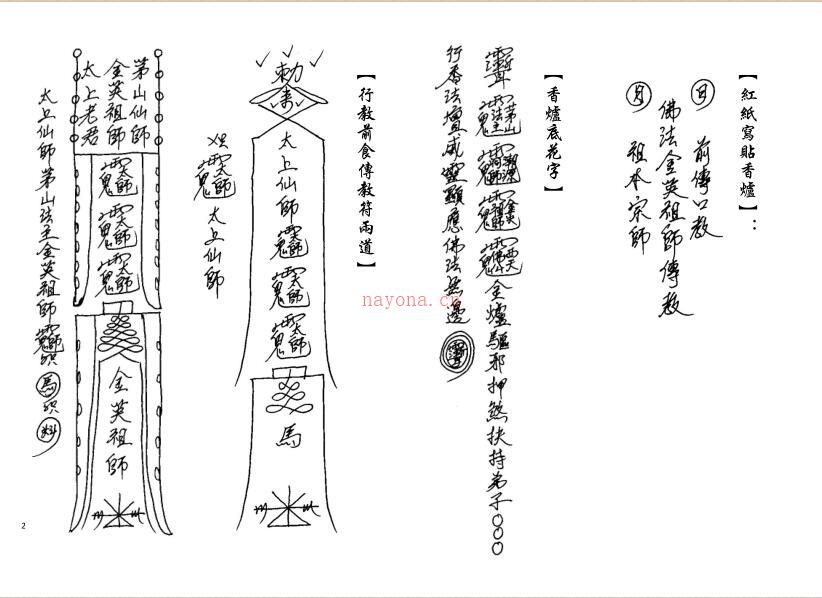 【紅紙寫貼香爐】：
日 前傳口教
佛法金英祖師傳教
月 祖本宗師
【香爐底花字】
金爐驅邪押煞扶持弟子○○○
行香法壇威靈顯應佛法無邊
【行教前食傳教符兩道】
勅
太上仙師
太師
太師
太師
馬
太師
太上仙師
茅山仙師
金英祖師
太上老君
太師
太師
太師
金英祖師
太上仙師茅山法主金英祖師
馬
nayona.cn
2